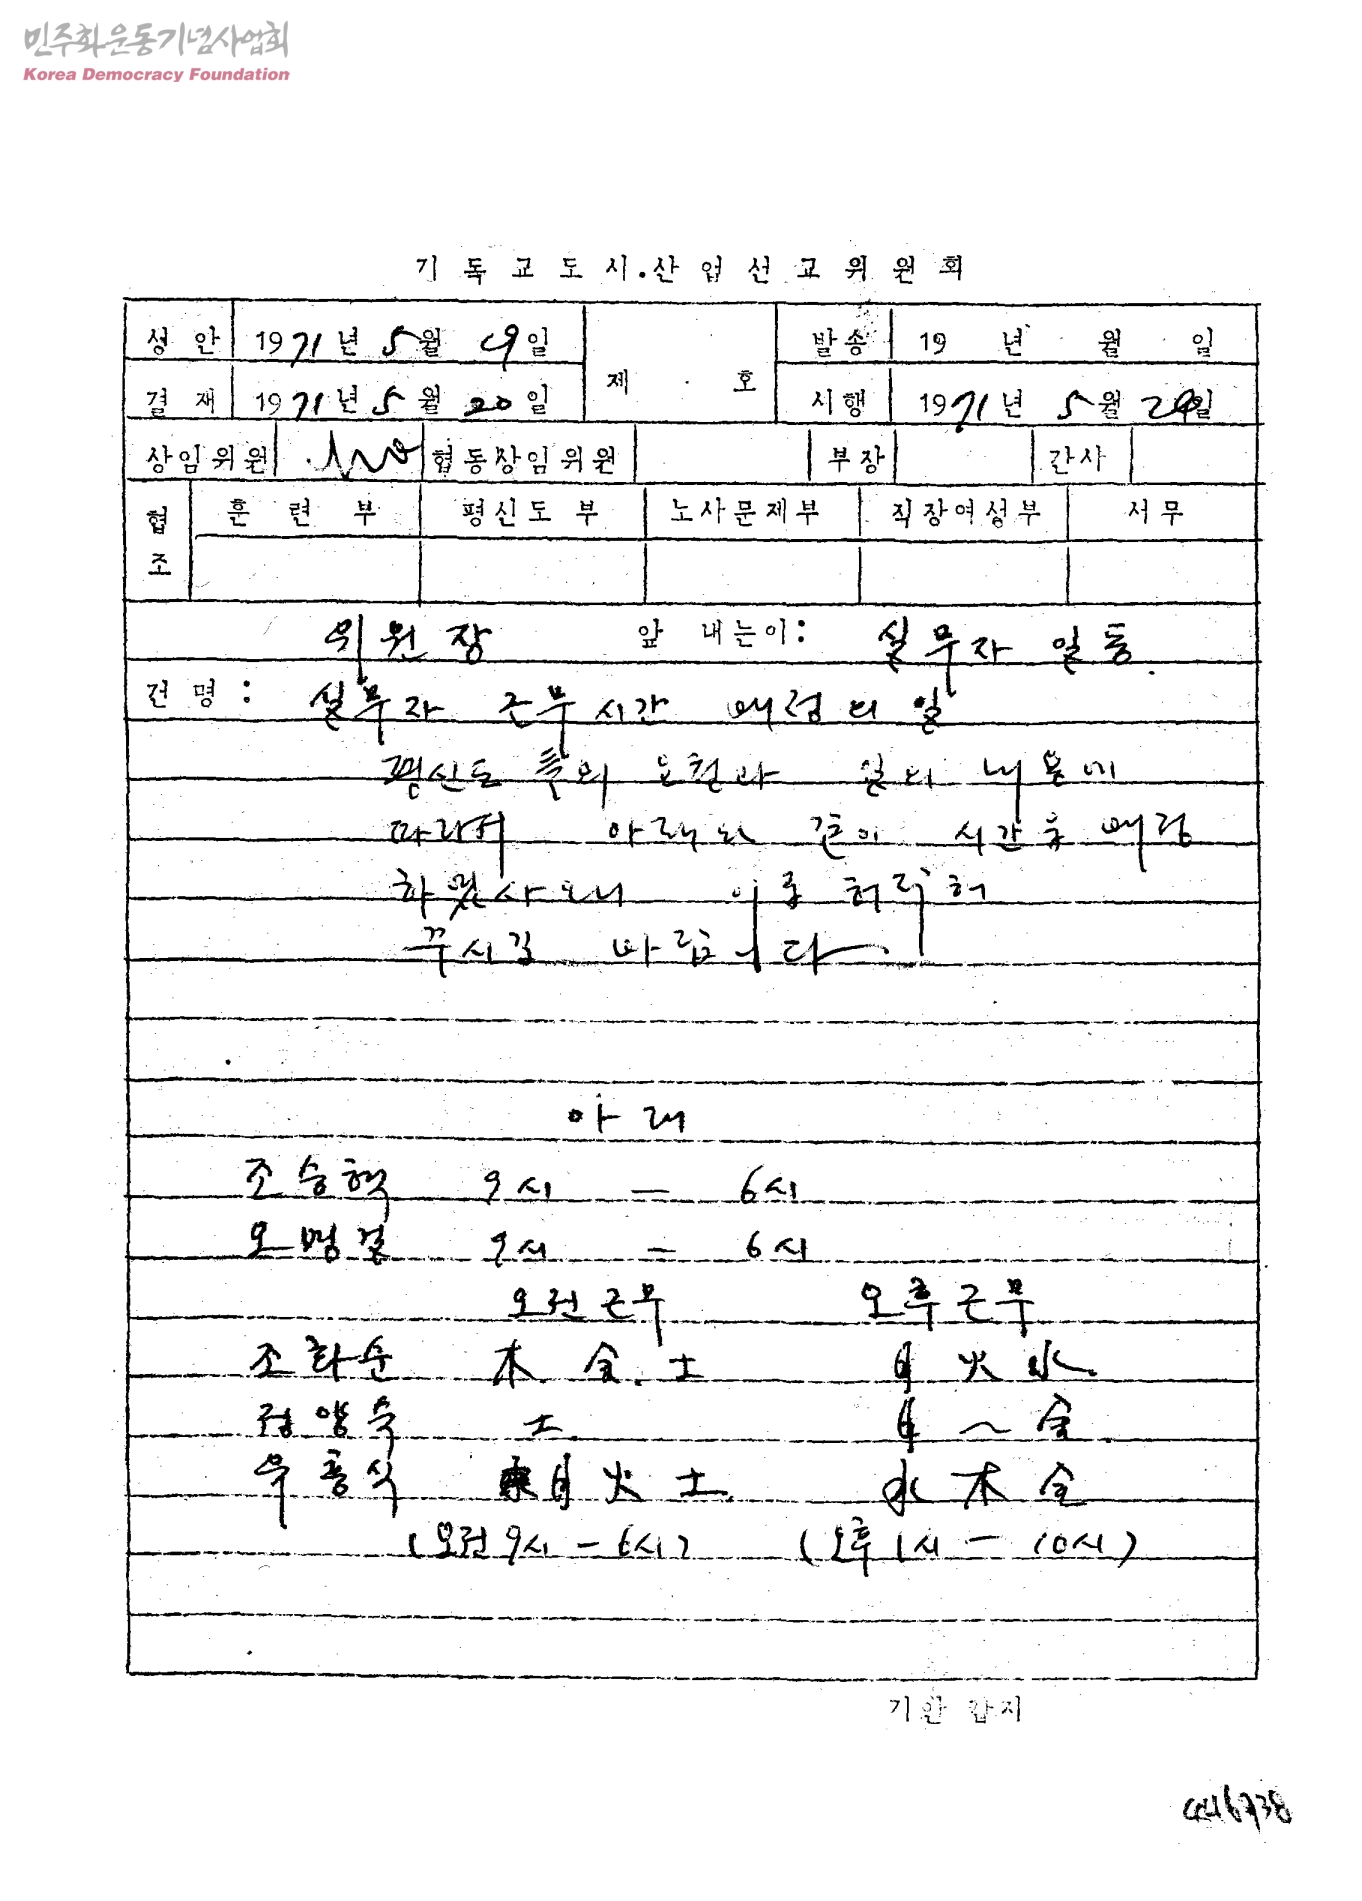 민주화운동기념사업회
Korea Democracy Foundation
기독교도시.산업선교위원회
성안 1971년 5월 19일 제 호 발송 19 년 월 일
결재 1971년 5월 20일 시행 1971년 5월 일
상임위원 협동상임위원 부장 간사
협조 훈련부 평신도부 노사문제부 직장여성부 서무
위원장 앞 내는이: 실무자 일동.
건명: 실무자 근무시간 배정의 일
평신도들의 요청과 일의 내용에
따라서 아래와 같이 시간을 배정
하였사오니 이를 허락해
주시길 바랍니다.
아래
조승혁 9시 — 6시
오명걸 9시 — 6시
오전근무 오후근무
조화순 木.金.土 月 火 水.
정양숙 土. 月 ~ 金.
유흥식 月 火 土. 水 木 金
(오전 9시 - 6시) (오후 1시 - 10시)
기안 갑지